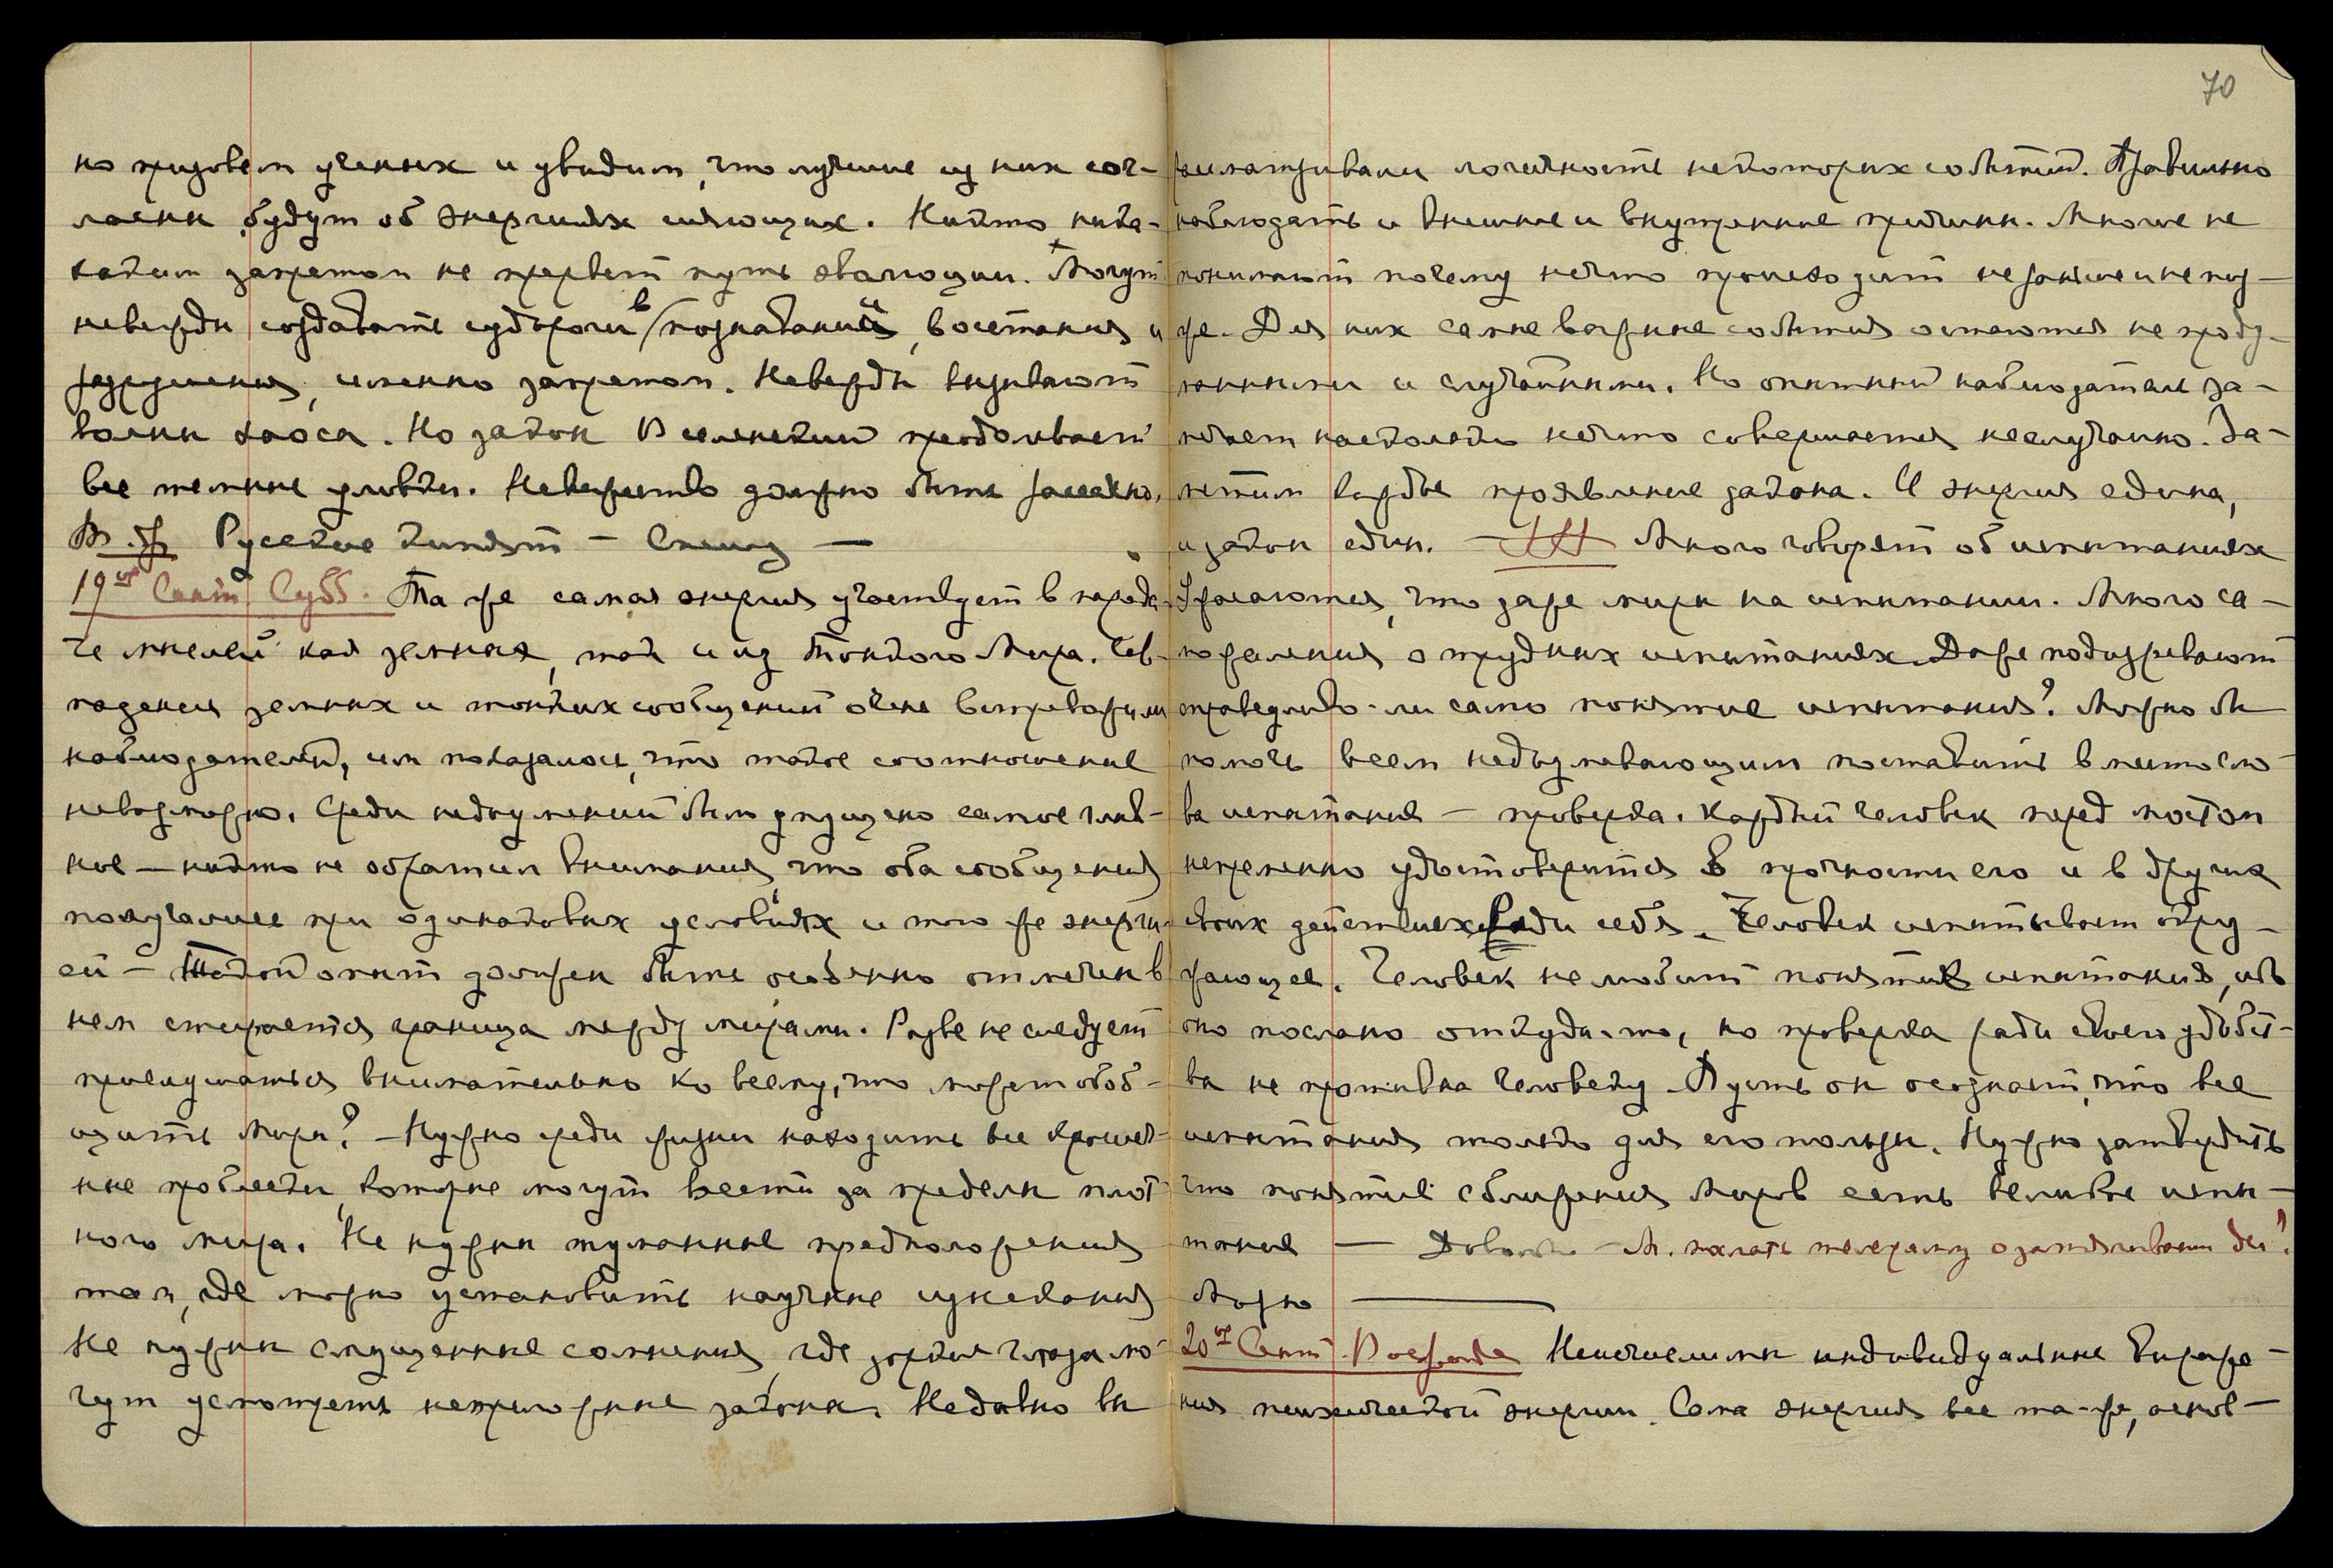 но призовем ученых и увидим, что лучшие из них сог-
ласны будут об энергиях сияющих. Никто ника-
каким запретом не прервет путь эволюции. Могут
невежды создавать судороги в познавании, восстания и
разрушения, именно запретом. Невежды вызывают
волны хаоса. Но закон Вселенский преодолевает
все темные уловки. Невежество должно быть
Русские кинут – Спешу –
19го Сент. Субб. Та же самая энергия участвует в переда-
че мыслей как земная, так и из Тонкого Мира. Сов-
падения земных и тонких сообщений очень встревожили
наблюдателей, им показалось, что такое соотношение
невозможно. Среди недоумений было упущено самое глав-
ное – никто не обратил внимания, что оба сообщения
получались при одинаковых условиях и тою же энерги-
ей – Такой опыт должен быть особенно отмечен в
нем стирается граница между мирами. Разве не следует
прислушаться внимательно ко всему, что может обоб-
щить Миры? – Нужно среди жизни находить все крошеч-
ные проблески, которые могут ввести за пределы плот
ного мира. Не нужны туманные предположения
там, где можно установить научные изыскания
Не нужны смущенные сомнения, где зоркие глаза мо-
гут усмотреть непреложные законы. Недавно вы
70
рассматривали логичность некоторых событий. Правильно
наблюдать и внешние и внутренние причины. Многие не
понимают почему нечто происходит не раньше и не поз-
же. Для них самые важные события остаются не проду-
манными и случайными. Но опытный наблюдатель за-
мечает насколько нечто совершается неслучайно. За-
метим каждое проявление закона. И энергия едина,
и закон един. – Много говорят об испытаниях
Ужасаются, что даже миры на испытании. Много са-
можаления о трудных испытаниях. Даже подозревают
справедливо-ли само понятие испытания? Можно бы
помочь всем недоумевающим поставить вместо сло-
ва испытание – проверка. Каждый человек перед мостом
непременно удостоверится в прочности его и в других
своих действиях ради себя. Человек испытывает окру-
жающее. Человек не любит понятия испытания, ибо
оно послано откуда-то, но проверка ради своего удобст-
ва не противна человеку. Пусть он осознает, что все
испытания только для его пользы. Нужно затвердить
что понятие сближения Миров есть великое испы-
тание – Довольно – М. послать телеграмму о
Можно –
20го Сент. Воскресенье Неисчислимы индивидуальные выраже-
ния психической энергии. Сама энергия все та-же, основ-